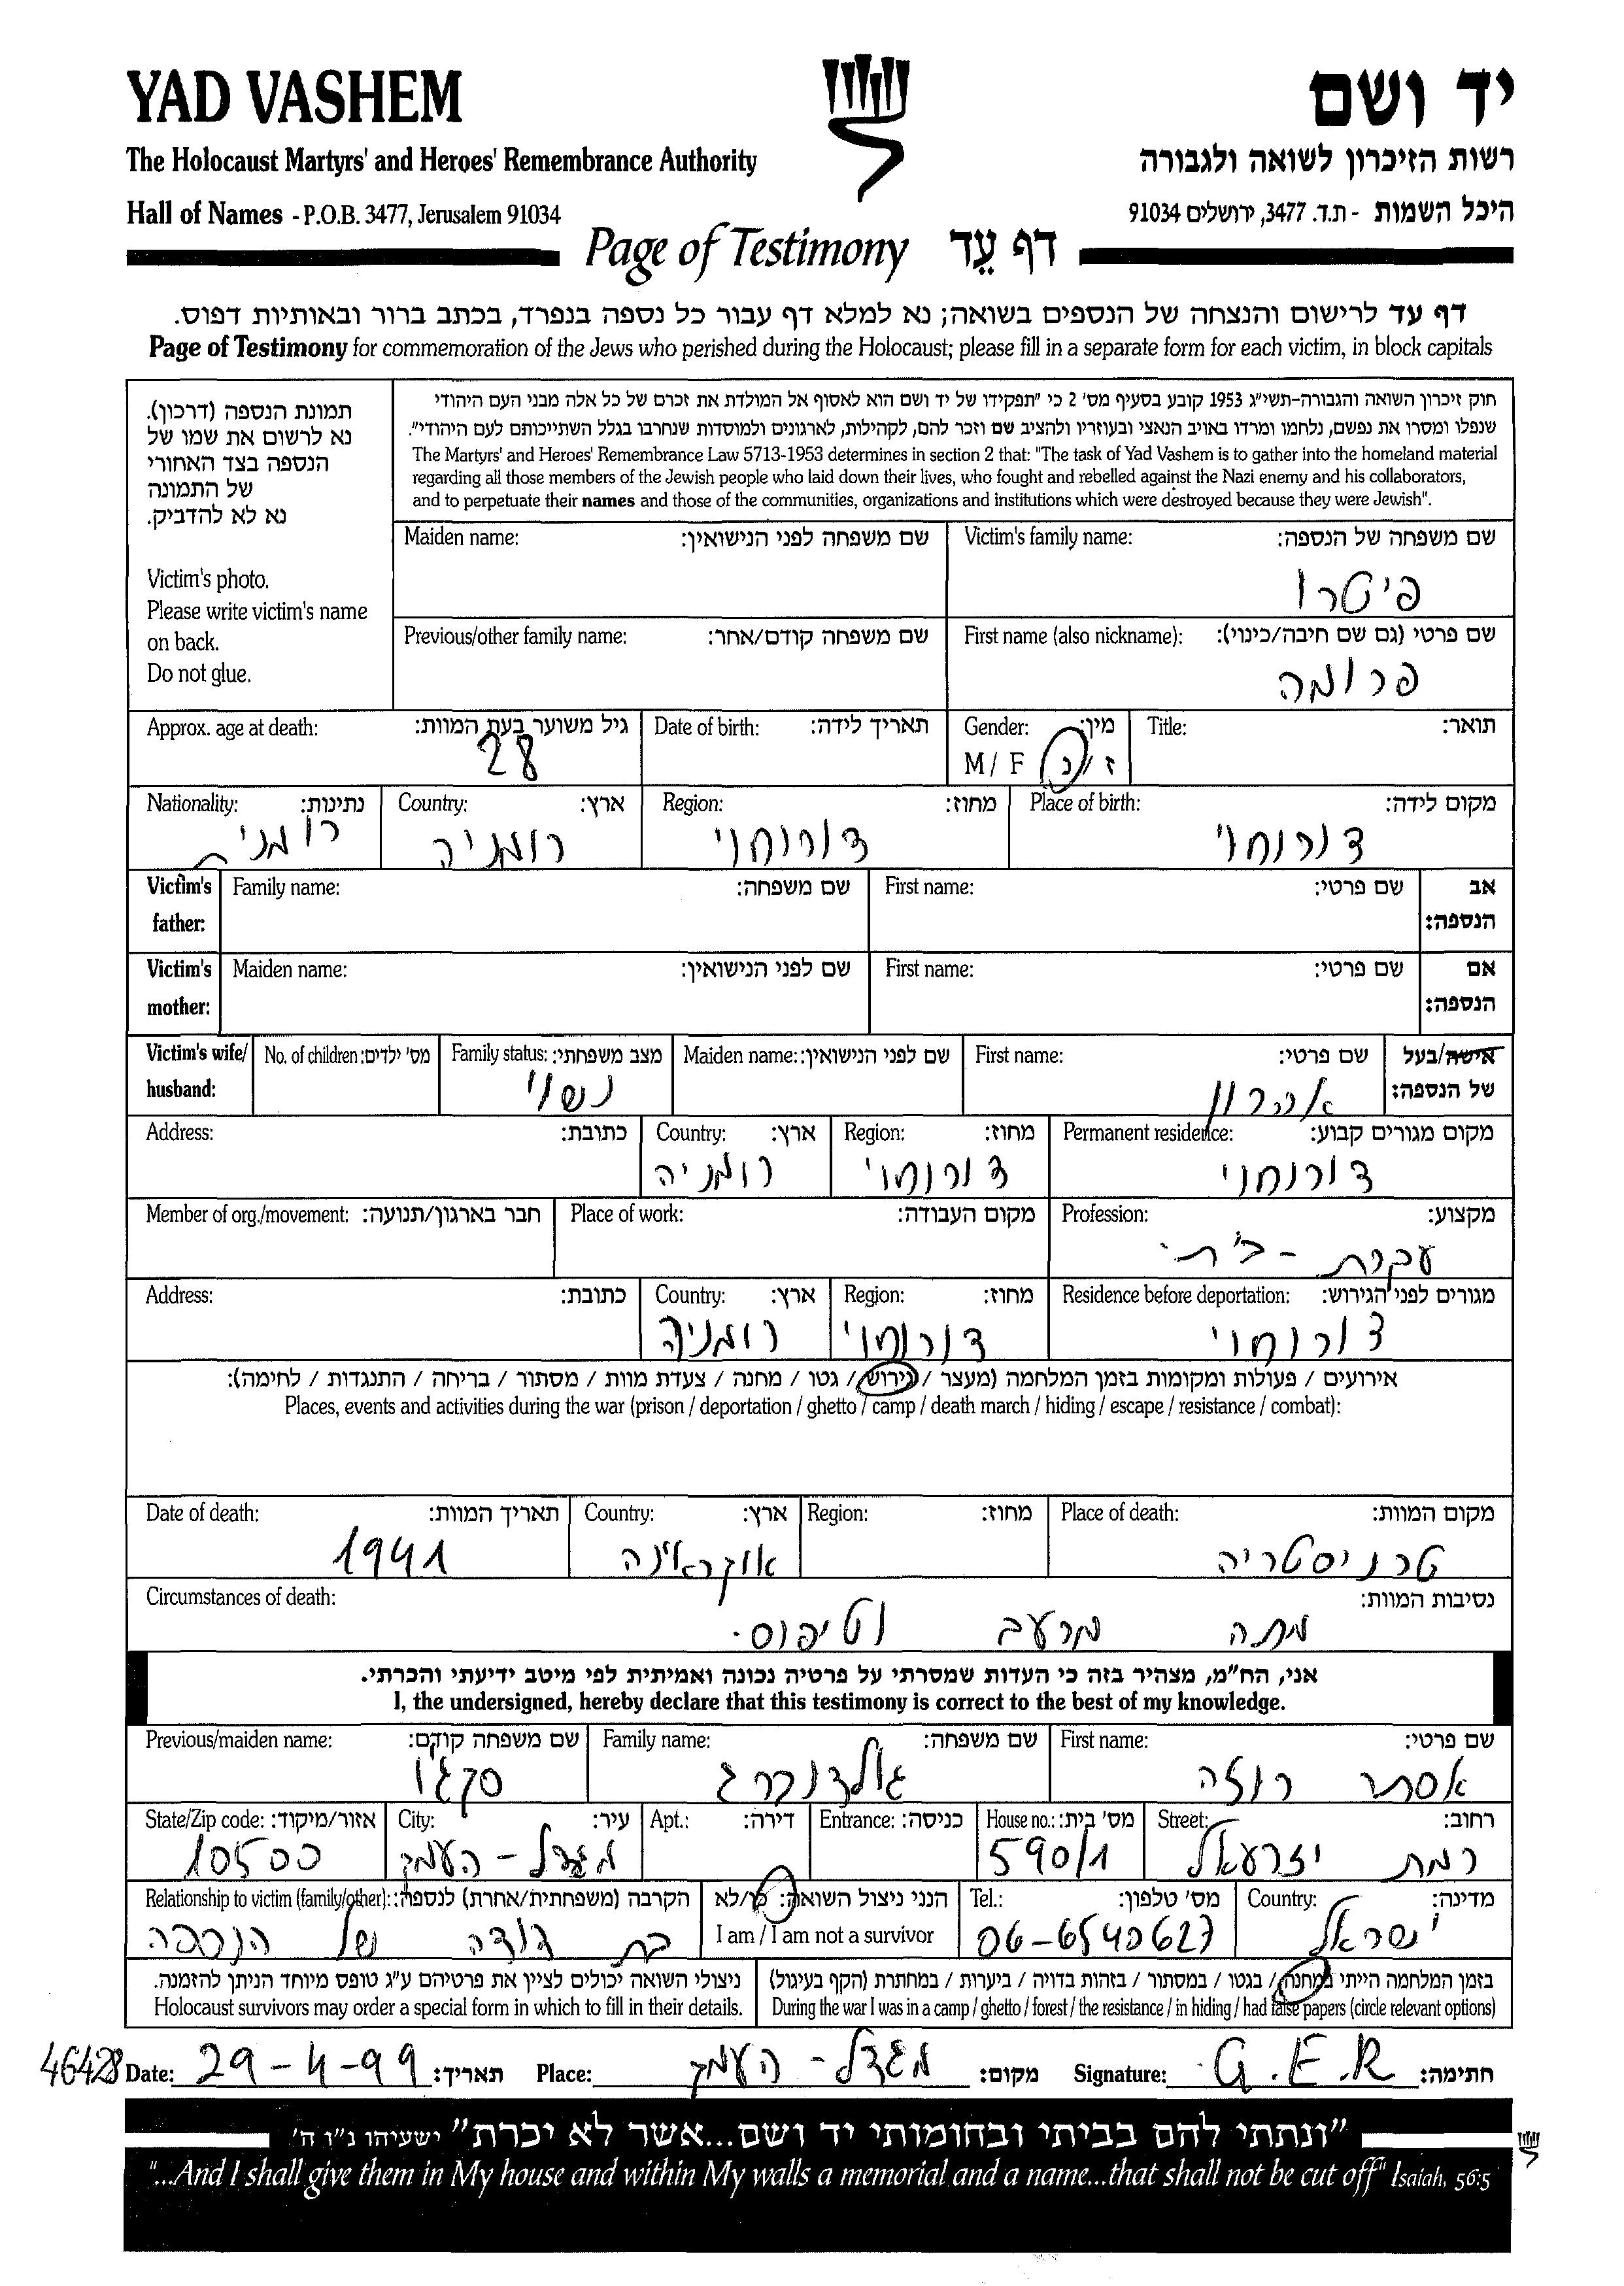 YAD VASHEM
יד ושם
The Holocaust Martyrs' and Heroes' Remembrance Authority
רשות הזיכרון לשואה ולגבורה
Hall of Names - P.O.B. 3477, Jerusalem 91034
היכל השמות - ת.ד. 3477, ירושלים 91034
Page of Testimony דף עֵד
דף עד לרישום והנצחה של הנספים בשואה; נא למלא דף עבור כל נספה בנפרד, בכתב ברור ובאותיות דפוס.
Page of Testimony for commemoration of the Jews who perished during the Holocaust; please fill in a separate form for each victim, in block capitals
תמונת הנספה (דרכון).
נא לרשום את שמו של
הנספה בצד האחורי
של התמונה
נא לא להדביק.
Victim's photo.
Please write victim's name
on back.
Do not glue.
חוק זיכרון השואה והגבורה-תשי"ג 1953 קובע בסעיף מס' 2 כי "תפקידו של יד ושם הוא לאסוף אל המולדת את זכרם של כל אלה מבני העם היהודי
שנפלו ומסרו את נפשם, נלחמו ומרדו באויב הנאצי ובעוזריו ולהציב שם וזכר להם, לקהילות, לארגונים ולמוסדות שנחרבו בגלל השתייכותם לעם היהודי".
The Martyrs' and Heroes' Remembrance Law 5713-1953 determines in section 2 that: "The task of Yad Vashem is to gather into the homeland material
regarding all those members of the Jewish people who laid down their lives, who fought and rebelled against the Nazi enemy and his collaborators,
and to perpetuate their names and those of the communities, organizations and institutions which were destroyed because they were Jewish".
Victim's family name: שם משפחה של הנספה:
פיטרו
Maiden name: שם משפחה לפני הנישואין:
First name (also nickname): שם פרטי (גם שם חיבה/כינוי):
פרומה
Previous/other family name: שם משפחה קודם/אחר:
Title: תואר:
Gender: מין:
M / F ז / נ
Date of birth: תאריך לידה:
Approx. age at death: גיל משוער בעת המוות:
28
Place of birth: מקום לידה:
דורוחוי
Region: מחוז:
דורוחוי
Country: ארץ:
רומניה
Nationality: נתינות:
רומנית
Victim's father: אב הנספה:
First name: שם פרטי:
Family name: שם משפחה:
Victim's mother: אם הנספה:
First name: שם פרטי:
Maiden name: שם לפני הנישואין:
Victim's wife/ husband: אישה/בעל של הנספה:
First name: שם פרטי:
אהרון
Maiden name: שם לפני הנישואין:
Family status: מצב משפחתי:
נשוי
No. of children: מס' ילדים:
Permanent residence: מקום מגורים קבוע:
דורוחוי
Region: מחוז:
דורוחוי
Country: ארץ:
רומניה
Address: כתובת:
Profession: מקצוע:
עקרת - בית.
Place of work: מקום העבודה:
Member of org./movement: חבר בארגון/תנועה:
Residence before deportation: מגורים לפני הגירוש:
דורוחוי
Region: מחוז:
דורוחוי
Country: ארץ:
רומניה
Address: כתובת:
אירועים / פעולות ומקומות בזמן המלחמה (מעצר / גירוש / גטו / מחנה / צעדת מוות / מסתור / בריחה / התנגדות / לחימה):
Places, events and activities during the war (prison / deportation / ghetto / camp / death march / hiding / escape / resistance / combat):
Place of death: מקום המוות:
טרניסטריה
Region: מחוז:
Country: ארץ:
אוקראינה
Date of death: תאריך המוות:
1941
Circumstances of death: נסיבות המוות:
מתה מרעב וטיפוס.
אני, הח"מ, מצהיר בזה כי העדות שמסרתי על פרטיה נכונה ואמיתית לפי מיטב ידיעתי והכרתי.
I, the undersigned, hereby declare that this testimony is correct to the best of my knowledge.
First name: שם פרטי:
אסתר רוזה
Family name: שם משפחה:
גולדנברג
Previous/maiden name: שם משפחה קודם:
Street: רחוב:
רמת יזרעאל
House no.: מס' בית:
590/1
Entrance: כניסה:
Apt.: דירה:
City: עיר:
מגדל - העמק
State/Zip code: אזור/מיקוד:
10500
Country: מדינה:
ישראל
Tel.: מס' טלפון:
06-6540627
הנני ניצול השואה: כן/לא
I am / I am not a survivor
Relationship to victim (family/other): הקרבה (משפחתית/אחרת) לנספה:
בת דודה של הנספה
בזמן המלחמה הייתי במחנה / בגטו / במסתור / בזהות בדויה / ביערות / במחתרת (הקף בעיגול)
During the war I was in a camp / ghetto / forest / the resistance / in hiding / had false papers (circle relevant options)
ניצולי השואה יכולים לציין את פרטיהם ע"ג טופס מיוחד הניתן להזמנה.
Holocaust survivors may order a special form in which to fill in their details.
46428 Date: 29-4-99 תאריך: Place: מגדל - העמק מקום: Signature: G.E.R חתימה:
"ונתתי להם בביתי ובחומותי יד ושם...אשר לא יכרת" ישעיהו נ"ו ה'
"...And I shall give them in My house and within My walls a memorial and a name...that shall not be cut off" Isaiah, 56:5